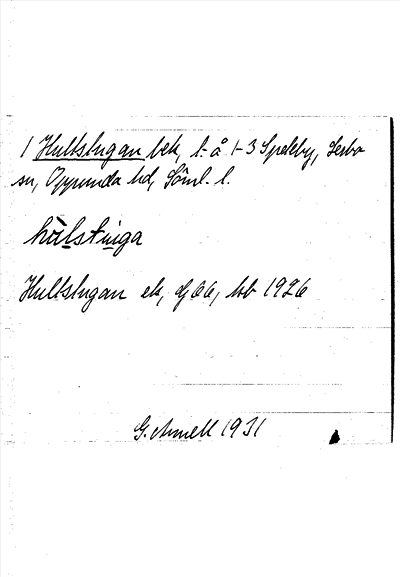 1 Hultstugan bek, l. å 1-3 Speleby, Lerbo
sn, Oppunda hd, Söml. l.
hùlstinga
Hultstugan ek, dj 66, hb 1926
G. Arnell 1931